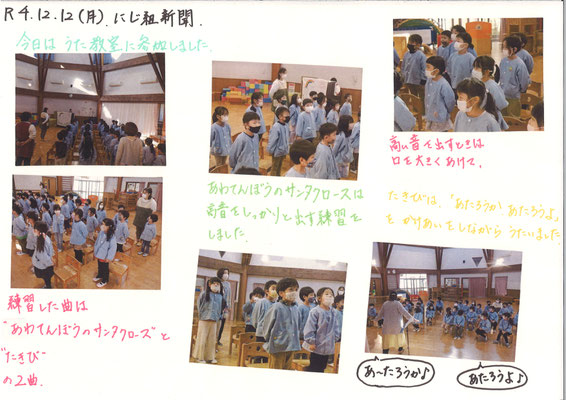 R4.12.12(月).にじ組新聞.
今日は うた教室に参加しました.
練習した曲は
"あわてんぼうのサンタクロース"と
"たきび"
の2曲.
あわてんぼうのサンタクロースは
高音をしっかりと出す練習を
しました.
高い音を出すときは
口を大きくあけて.
たきびは、「あたろうか あたろうよ」
を かけあいをしながら うたいました.
あ〜たろうか♪
あたろうよ♪